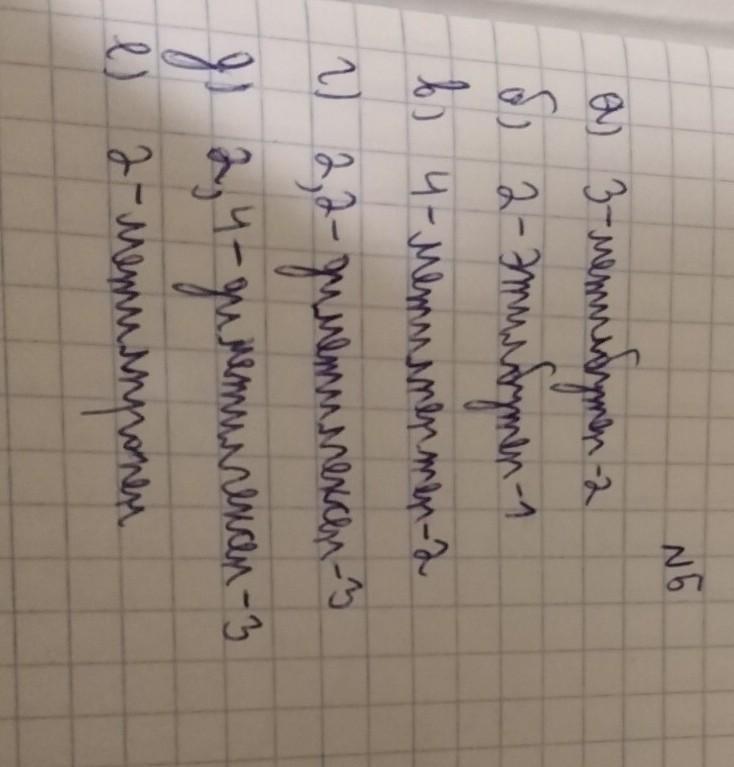 №6
а) 3-метилбутен-2
б) 2-этилбутен-1
в) 4-метилпентен-2
г) 2,2-диметилгексен-3
д) 2,4-диметилгексен-3
е) 2-метилпропен